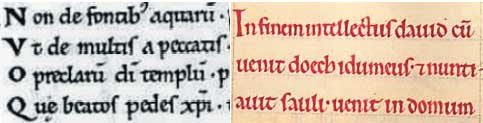 Non de fontibꝰ aquarũ ·
Vt de multis a peccatis ·
O preclarũ di̅ templũ · p
Que̅ beatos pedes xp̅i · i
In finem intellectus dauid cũ
uenit doech idumeus · ⁊ nunti
auit sauli · uenit in domum